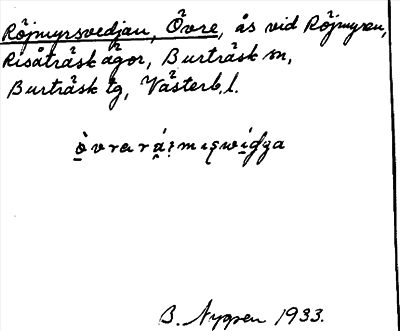 Röjmyrsvedjan, Övre, ås vid Röjmyran,
Risåträsk ägor, Burträsk sn,
Burträsk tg, Västerb. l.
B. Nygren 1933.